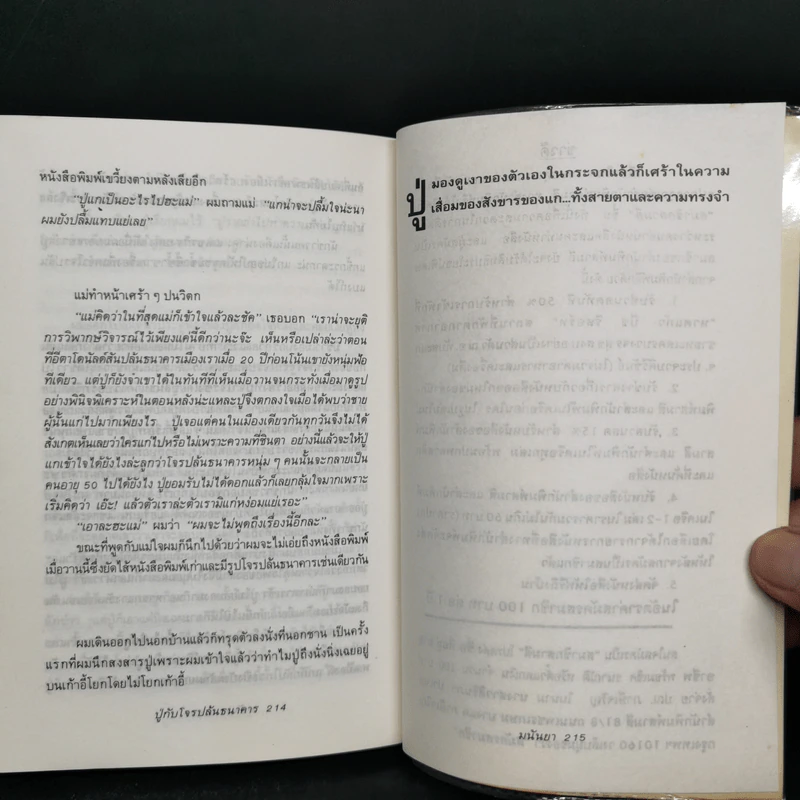 หนังสือพิมพ์เขวี้ยงตามหลังเสียอีก
“ปู่แกเป็นอะไรไปฮะแม่” ผมถามแม่ “แกน่าจะปลื้มใจน่ะนา
ผมยังปลื้มแทบแย่เลย”
แม่ทำหน้าเศร้า ๆ ปนวิตก
“แม่คิดว่าในที่สุดแม่ก็เข้าใจแล้วละชัค” เธอบอก “เราน่าจะยุติ
การวิพากษ์วิจารณ์ไว้เพียงแค่นี้ดีกว่านะจ๊ะ เห็นหรือเปล่าล่ะว่าตอน
ที่อีตาโดนัลด์สันปล้นธนาคารเมืองเราเมื่อ 20 ปีก่อนโน้นเขายังหนุ่มฟ้อ
ทีเดียว แต่ปู่ก็ยังจำเขาได้ในทันทีที่เห็นเมื่อวานจนกระทั่งเมื่อมาดูรูป
อย่างพินิจพิเคราะห์ในตอนหลังน่ะแหละปู่จึงตกลงใจเมื่อได้พบว่าชาย
ผู้นั้นแก่ไปมากเพียงไร ปู่เจอแต่คนในเมืองเดียวกันทุกวันจึงไม่ได้
สังเกตเห็นเลยว่าใครแก่ไปหรือไม่เพราะความที่ชินตา อย่างนี้แล้วจะให้ปู่
แกเข้าใจได้ยังไงล่ะลูกว่าโจรปล้นธนาคารหนุ่ม ๆ คนนั้นจะกลายเป็น
คนอายุ 50 ไปได้ยังไง ปู่ยอมรับไม่ได้ดอกแล้วก็เลยกลุ้มใจมากเพราะ
เริ่มคิดว่า เอ๊ะ! แล้วตัวเราล่ะตัวเรามิแก่หง่อมแย่เรอะ”
“เอาละฮะแม่” ผมว่า “ผมจะไม่พูดถึงเรื่องนี้อีกละ”
ขณะที่พูดกับแม่ใจผมก็นึกไปด้วยว่าผมจะไม่เอ่ยถึงหนังสือพิมพ์
เมื่อวานนี้ซึ่งยัดไส้หนังสือพิมพ์เก่าและมีรูปโจรปล้นธนาคารเช่นเดียวกัน
ผมเดินออกไปนอกบ้านแล้วก็ทรุดตัวลงนั่งที่นอกชาน เป็นครั้ง
แรกที่ผมนึกสงสารปู่เพราะผมเข้าใจแล้วว่าทำไมปู่ถึงนั่งนิ่งเฉยอยู่
บนเก้าอี้โยกโดยไม่โยกเก้าอี้
ปู่กับโจรปล้นธนาคาร 214
ปู่ มองดูเงาของตัวเองในกระจกแล้วก็เศร้าในความ
เสื่อมของสังขารของแก...ทั้งสายตาและความทรงจำ
มนันยา 215